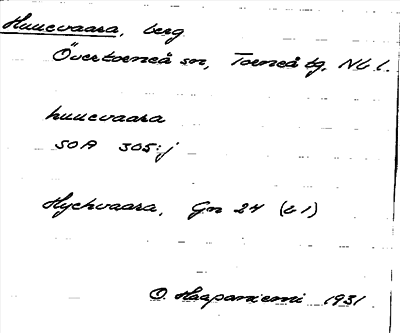 Huucvaara, berg
Övertorneå sn, Torneå tg. Nb l.
huucvaara
SOA 305:j
Hychvaara, Gn 24 (b 1)
O. Haapaniemi 1931